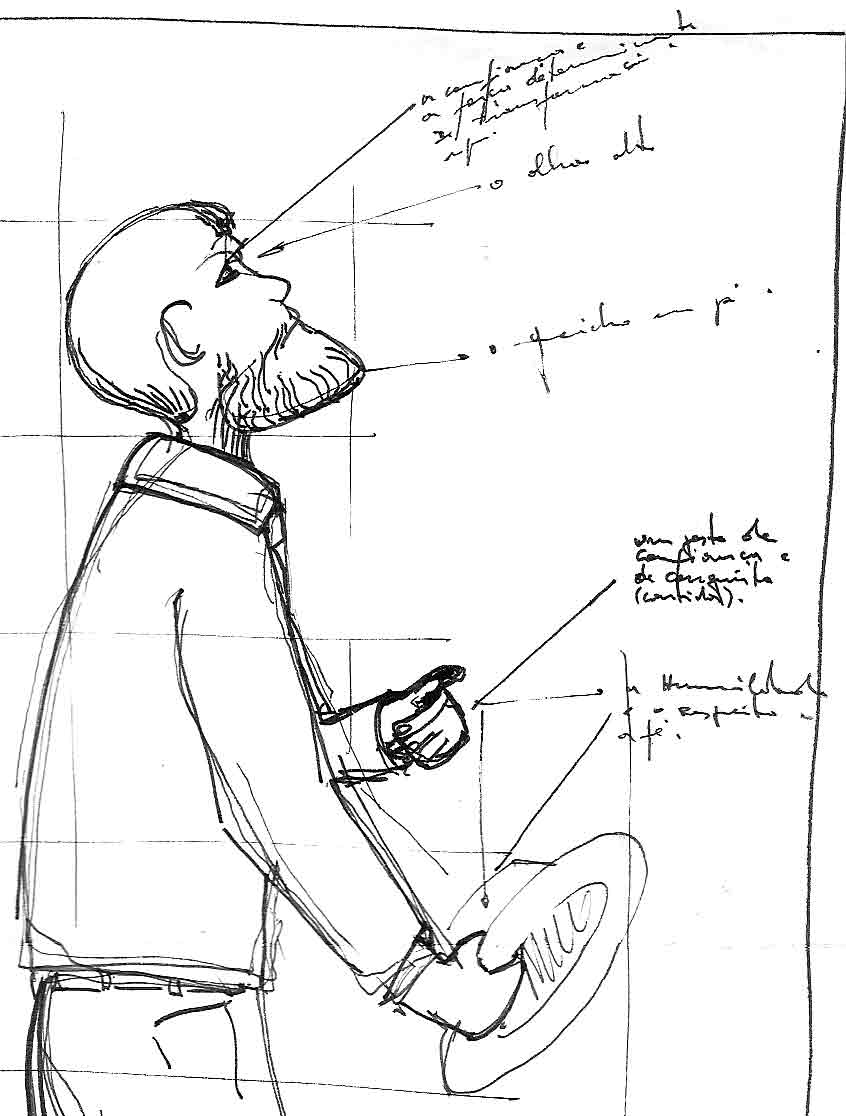 a confiança e
a força determinante
de transformaçã
o olhar alto
o queicho em pé.
um gesto de
confiança e
de conquista
(contida).
a Humildade
e o respeito a
a fé.